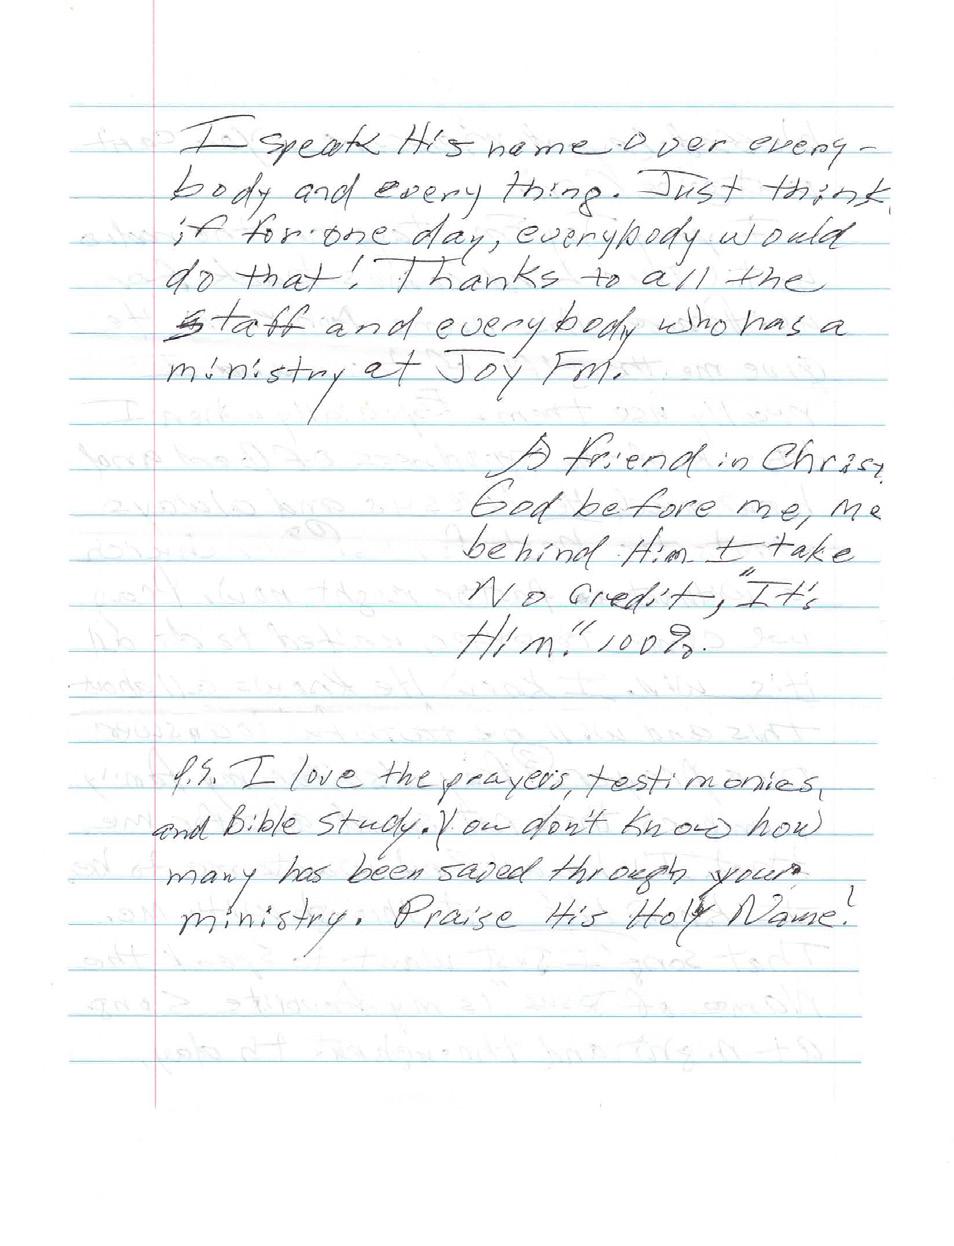 I speak His name over every-
body and every thing. Just think,
if for one day, everybody would
do that! Thanks to all the
staff and everybody who has a
ministry at Joy Fm.
A friend in Christ,
God before me, me
behind Him. I take
No Credit, "It's
Him." 100%.
P.S. I love the prayers, testimonies,
and Bible study. You don't know how
many has been saved through your
ministry. Praise His Holy Name!